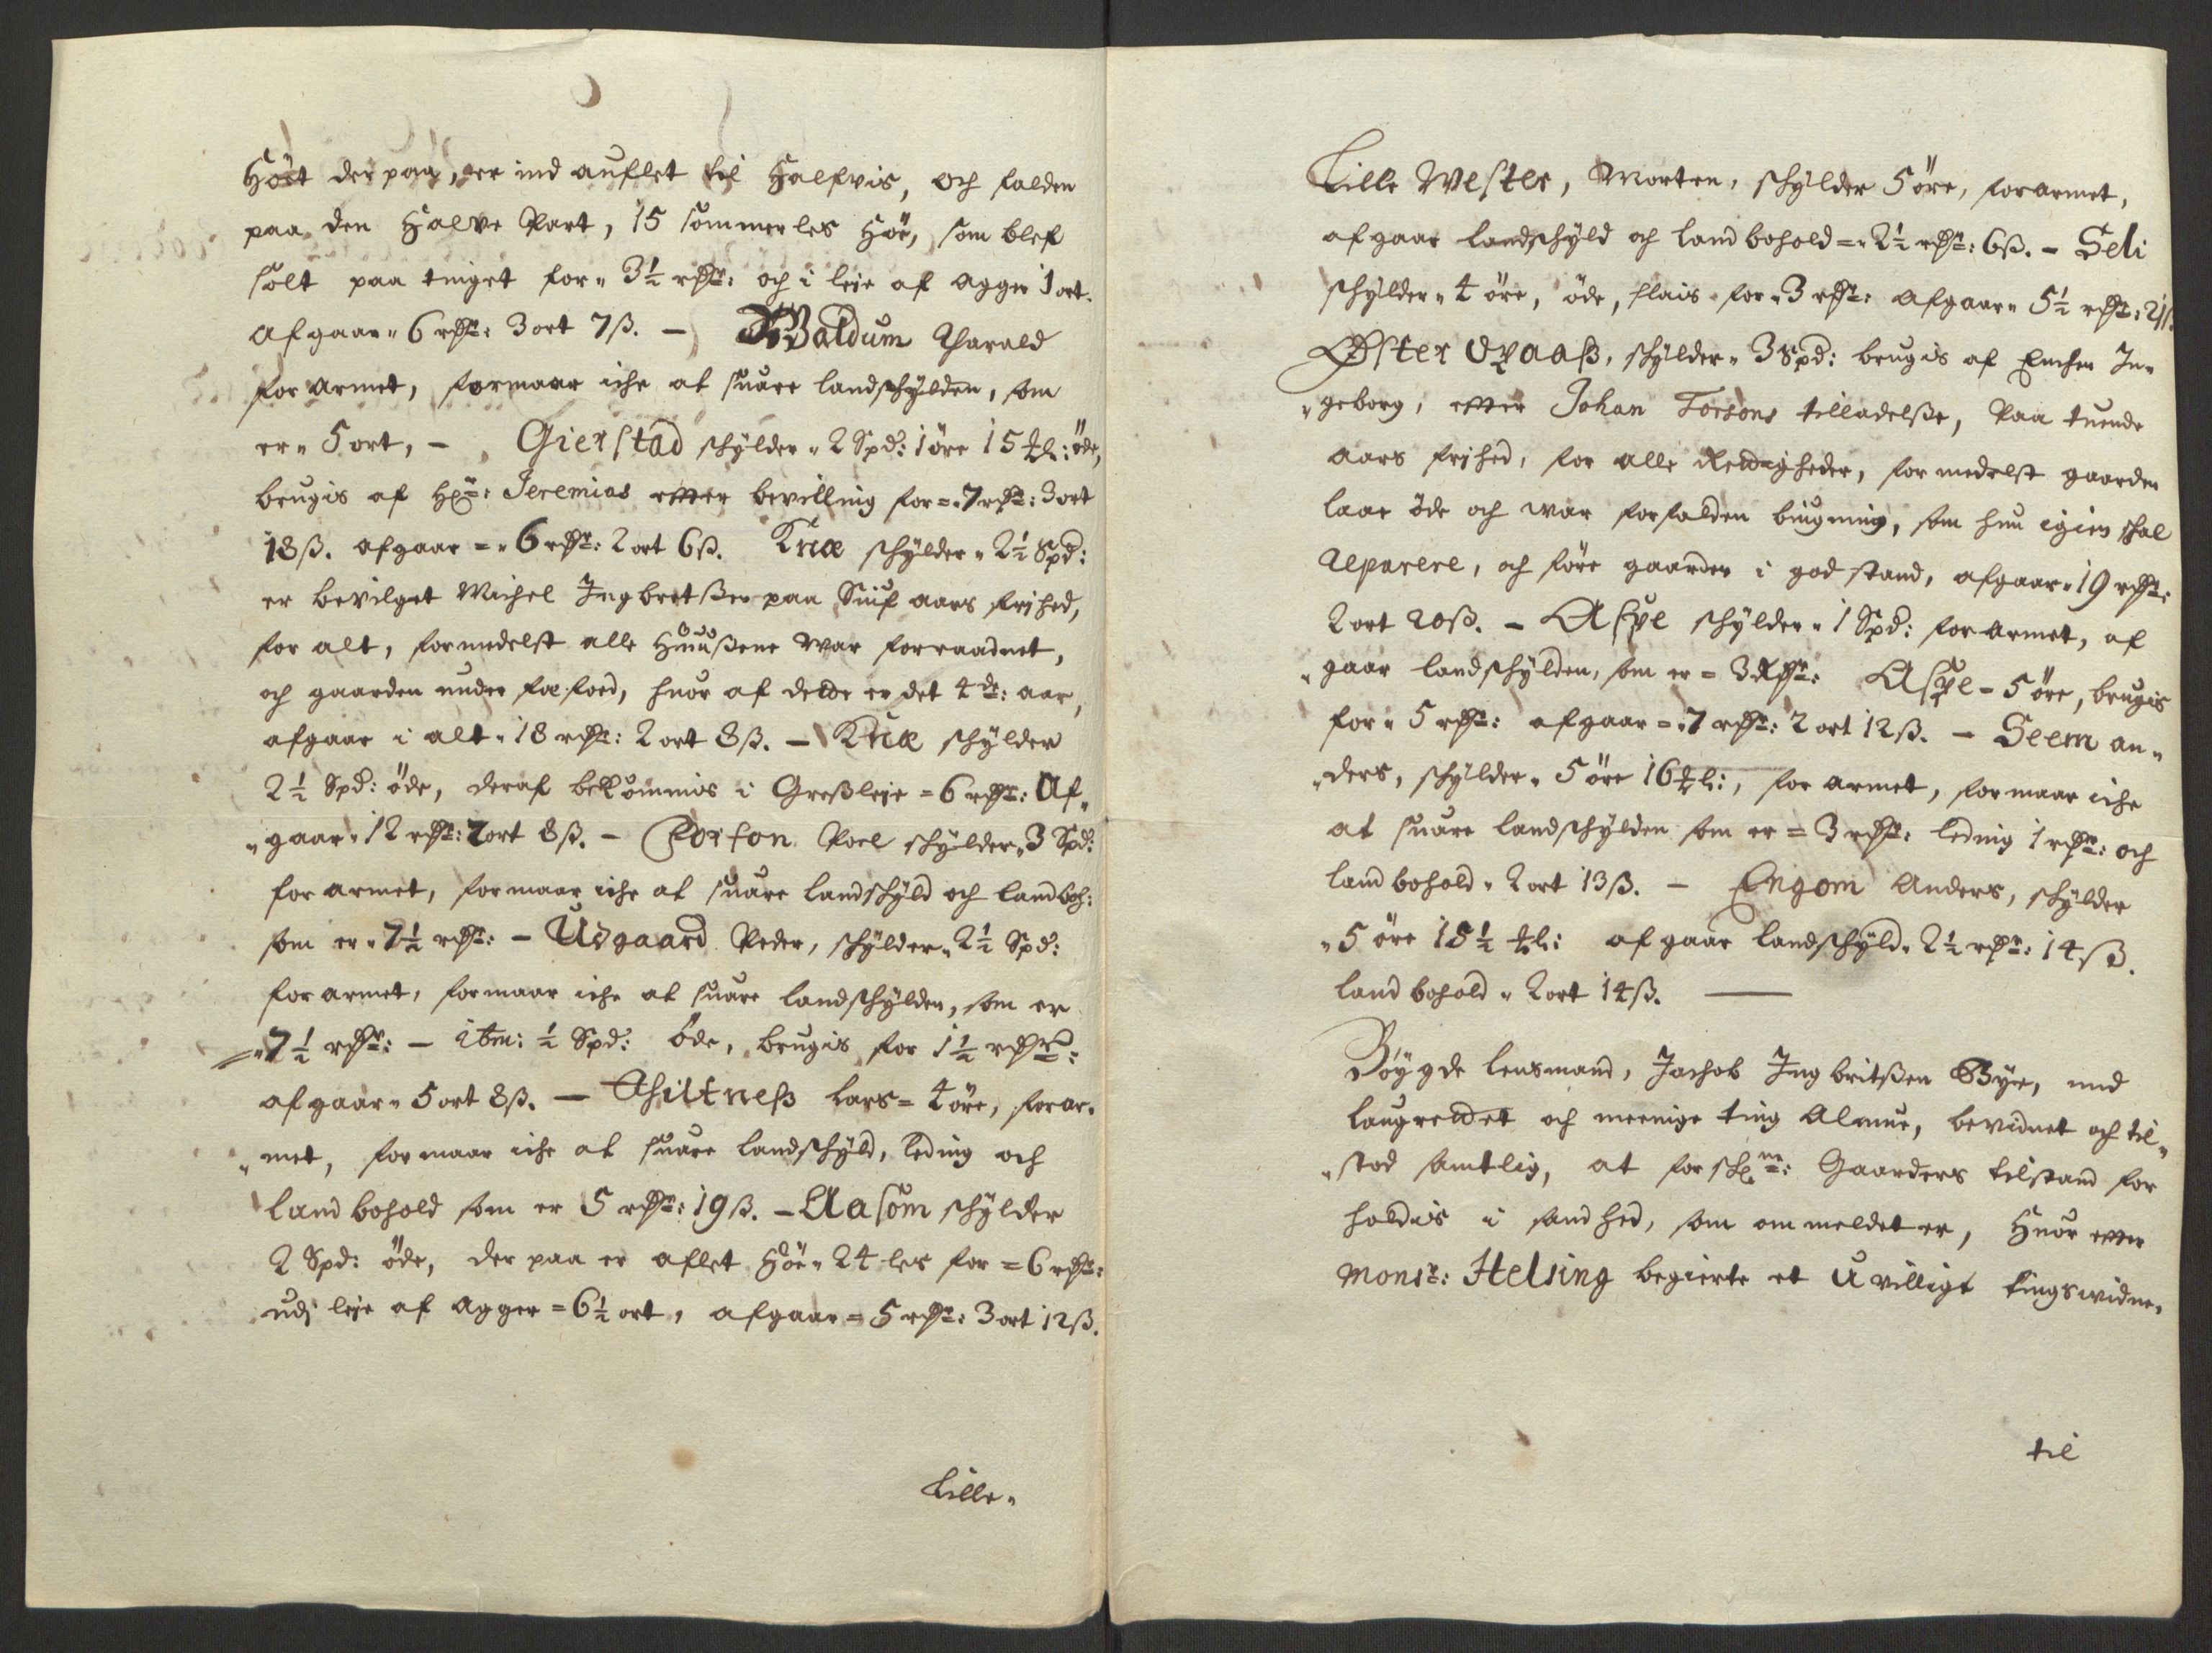 Höst der paa, er ind auflet til Halfvis, och falden
paa den Halve Part, 15 sommerles Höe, som blef
solt paa tinget for 3½ rdr: och i leje af agger 1 ort.
Afgaar 6 rdr: 3 ort 7ß. — Waldum Harald
forarmet, formaar iche at suare landschylden, som
er 5 ort, — Gierstad schylder 2 Spd: 1 öre 15 ᵯl: öde,
brugis af Hr: Jeremias effter bevilling for = 7 rdr: 3 ort
18ß. afgaar = 6 rdr: 2 ort 6ß. Knæ schylder 2½ Spd:
er bevilget Michel Ingbretßen paa Siuf aars frjhed,
for alt, formedelst alle Huußene war forraadnet,
och gaarden under fæ food, huor af dette er det 4de: aar,
afgaar i alt 18 rdr: 2 ort 8ß. — Knæ schylder
2½ Spd: öde, deraf bekommis i Græßleje = 6 rdr: Af„
„gaar 12 rdr: 2 ort 8ß. — Forfon Poel schylder 3 Spd:
forarmet, formaar iche at suare landschyld och landboh:
som er 7½ rdr: — Udgaard Peder, schylder 2½ Spd:
forarmet, formaar iche at suare landschylden, som er
7½ rdr: — itm: ½ Spd: öde, brugis for 1½ rdr:
afgaar 5 ort 8ß. — Thiltneß Lars = 4 öre, forar„
„met, formaar iche at suare landschyld, leding och
landbohold som er 5 rdr: 19ß. — Aasom schylder
2 Spd: öde, der paa er aflet Höe 24 les for = 6 rdr:
udj leje af agger = 6½ ort, afgaar = 5 rdr: 3 ort 12ß.
Lille„
Lille Wester, Morten, schylder 5 öre, forarmet,
afgaar landschyld och landbohold = 2½ rdr: 6ß. — Seli
schylder 4 öre, öde, slais for 3 rdr: Afgaar 5½ rdr: 21ß.
Øster Qvaaß, schylder 3 Spd: brugis af Enchen In„
„geborg, effter Johan Torsons tilladelße, Paa tuende
aars frjhed, for alle Rettigheder, formedelst gaarden
laae öde och war forfalden bygning, som hun igien schal
Reparere, och före gaarden i god stand, afgaar 19 rdr:
2 ort 20ß. — Aspe schylder 1 Spd: forarmet, af
„gaar landschylden, som er = 3 Rdr: Aspe — 5 öre, brugis
for 5 rdr: afgaar = 7 rdr: 2 ort 12ß. — Seem An„
„ders, schylder 5 öre 16 ᵯl:, forarmet, formaar iche
at suare landschylden som er = 3 rdr: leding 1 rdr: och
landbohold 2 ort 13ß. — Engom Anders, schylder
5 öre 15½ ᵯl: afgaar landschyld 2½ rdr: 14ß.
landbohold 2 ort 14ß. —
Böygde lensmand, Jachob Ingbritßen Bye, med
laugrettet och meenige ting Almue, bevidnet och til„
„stod samtlig, at forschrm: Gaarders tilstand for
holdis i sandhed, som ommeldet er, Huor effter
Monsr: Helsing begierte et uvilligt tingswidne„
til